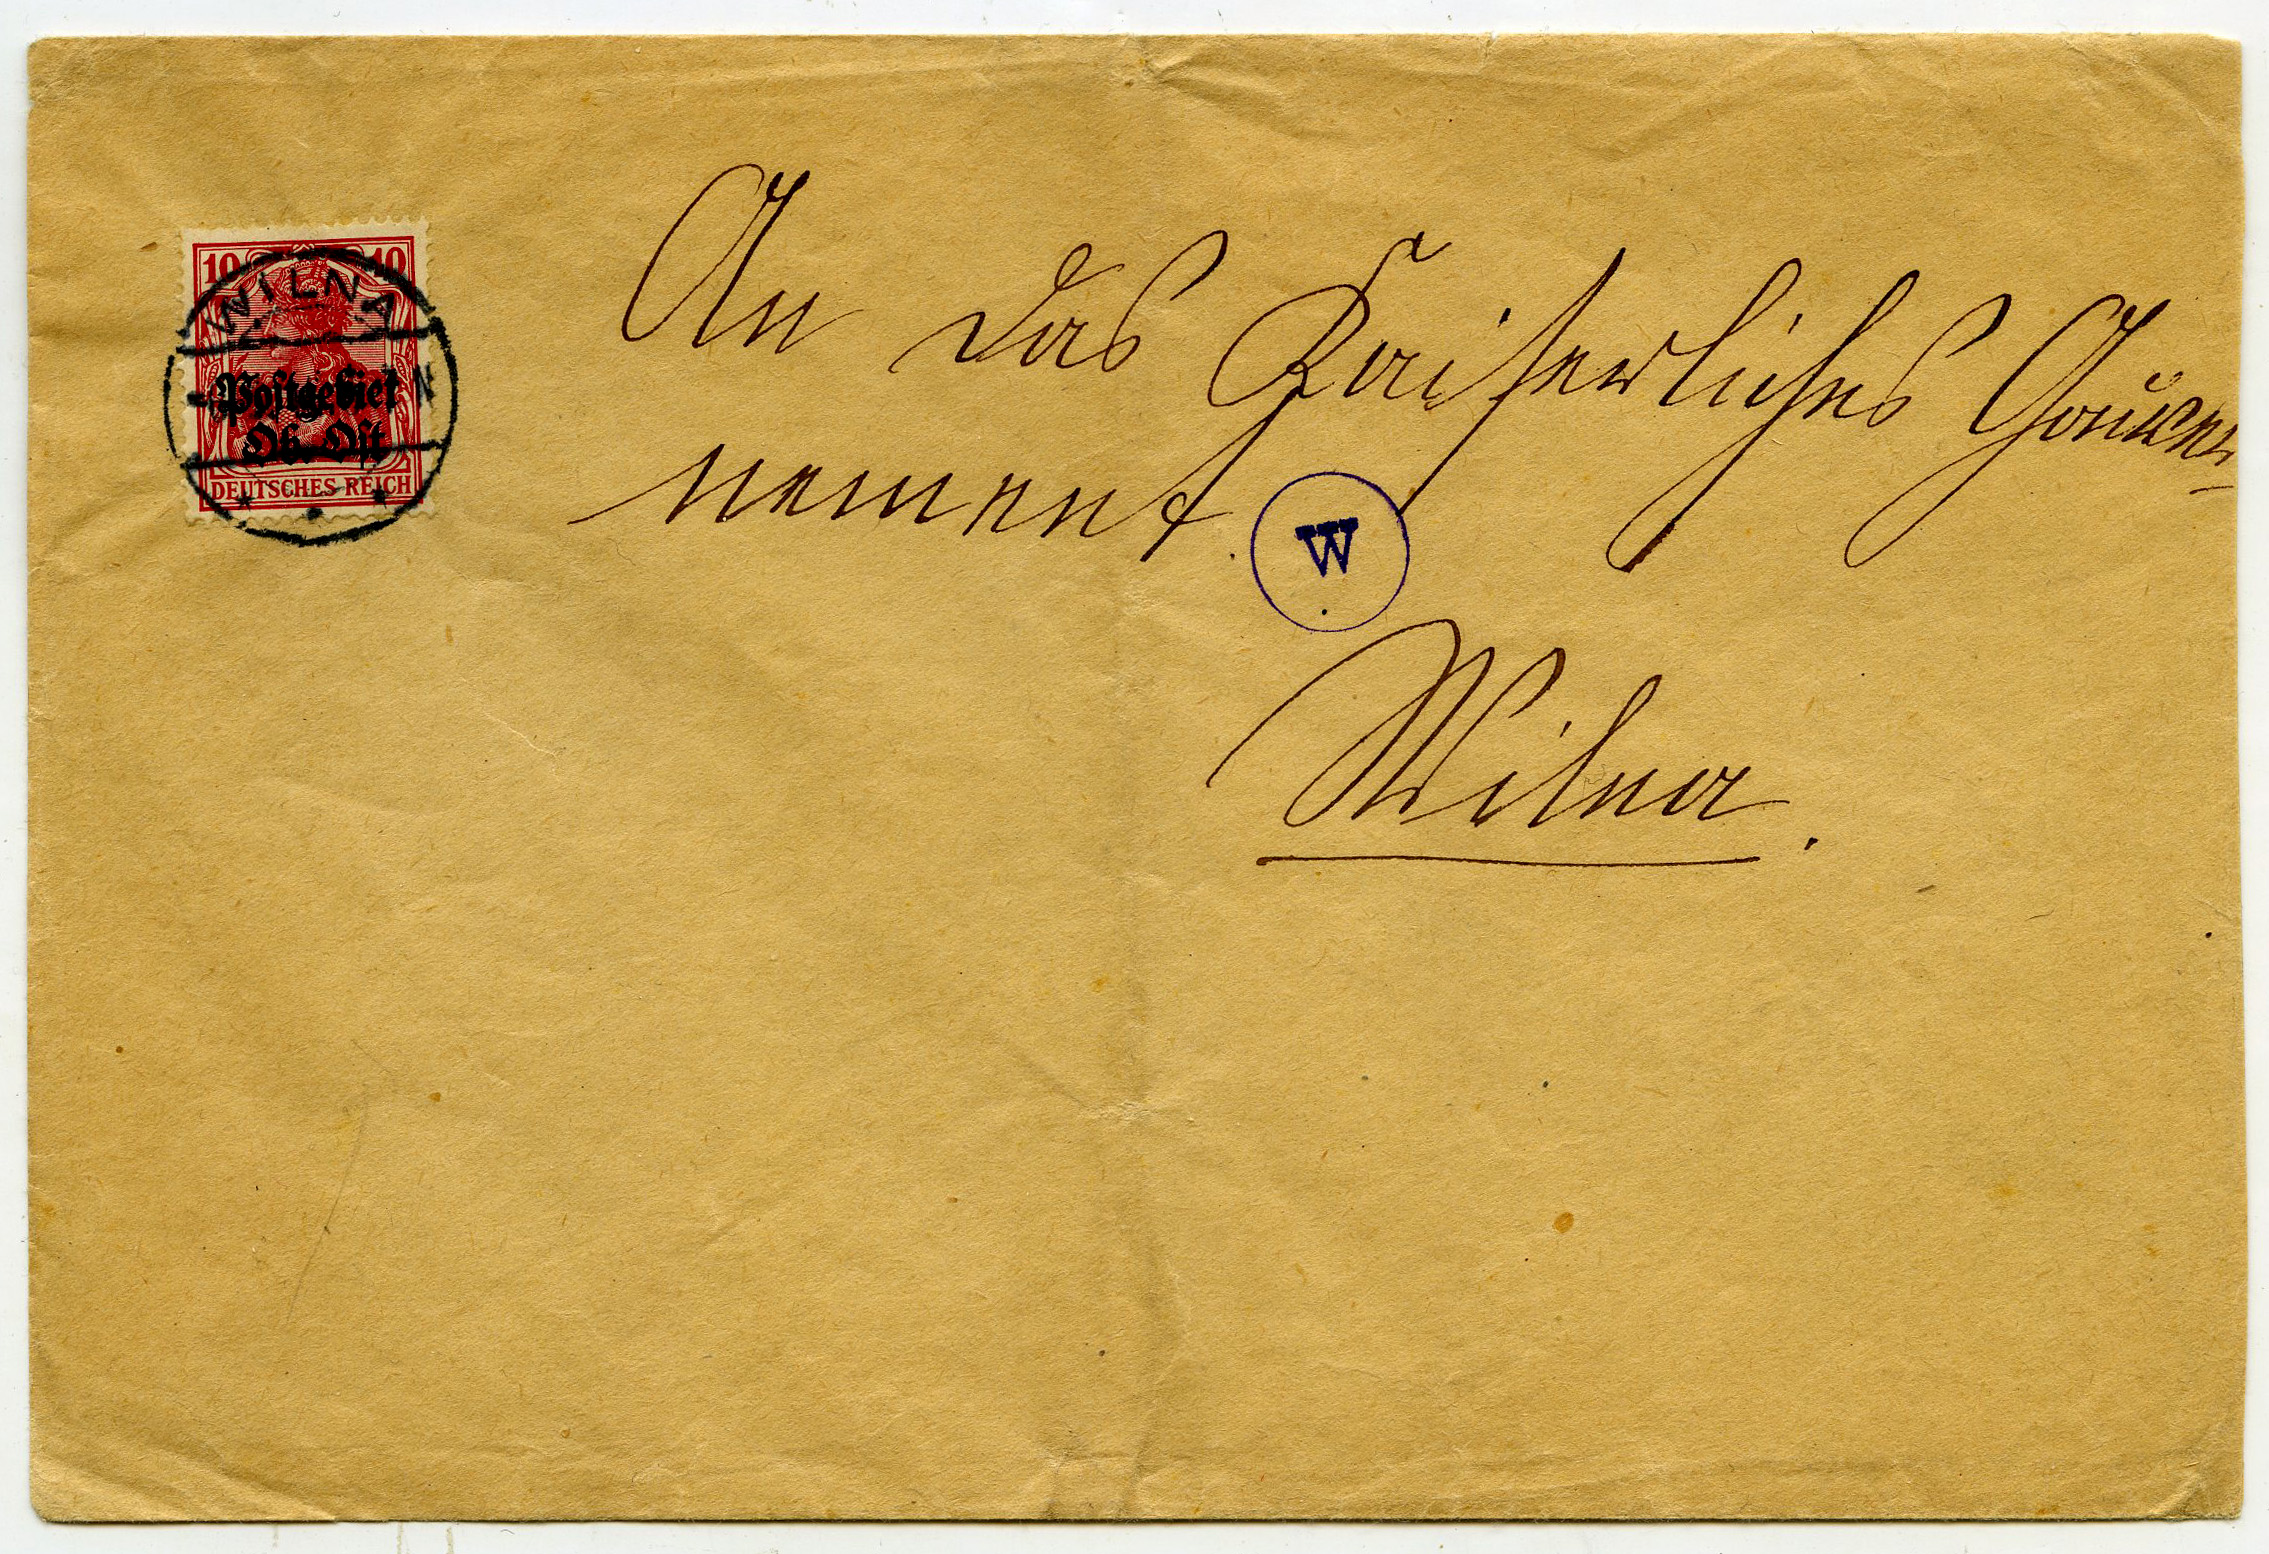 10 10
WILNA
Postgebiet
Ob. Ost
DEUTSCHES REICH
An das Kaiserliches Gouver-
nement.
W
Wilna.